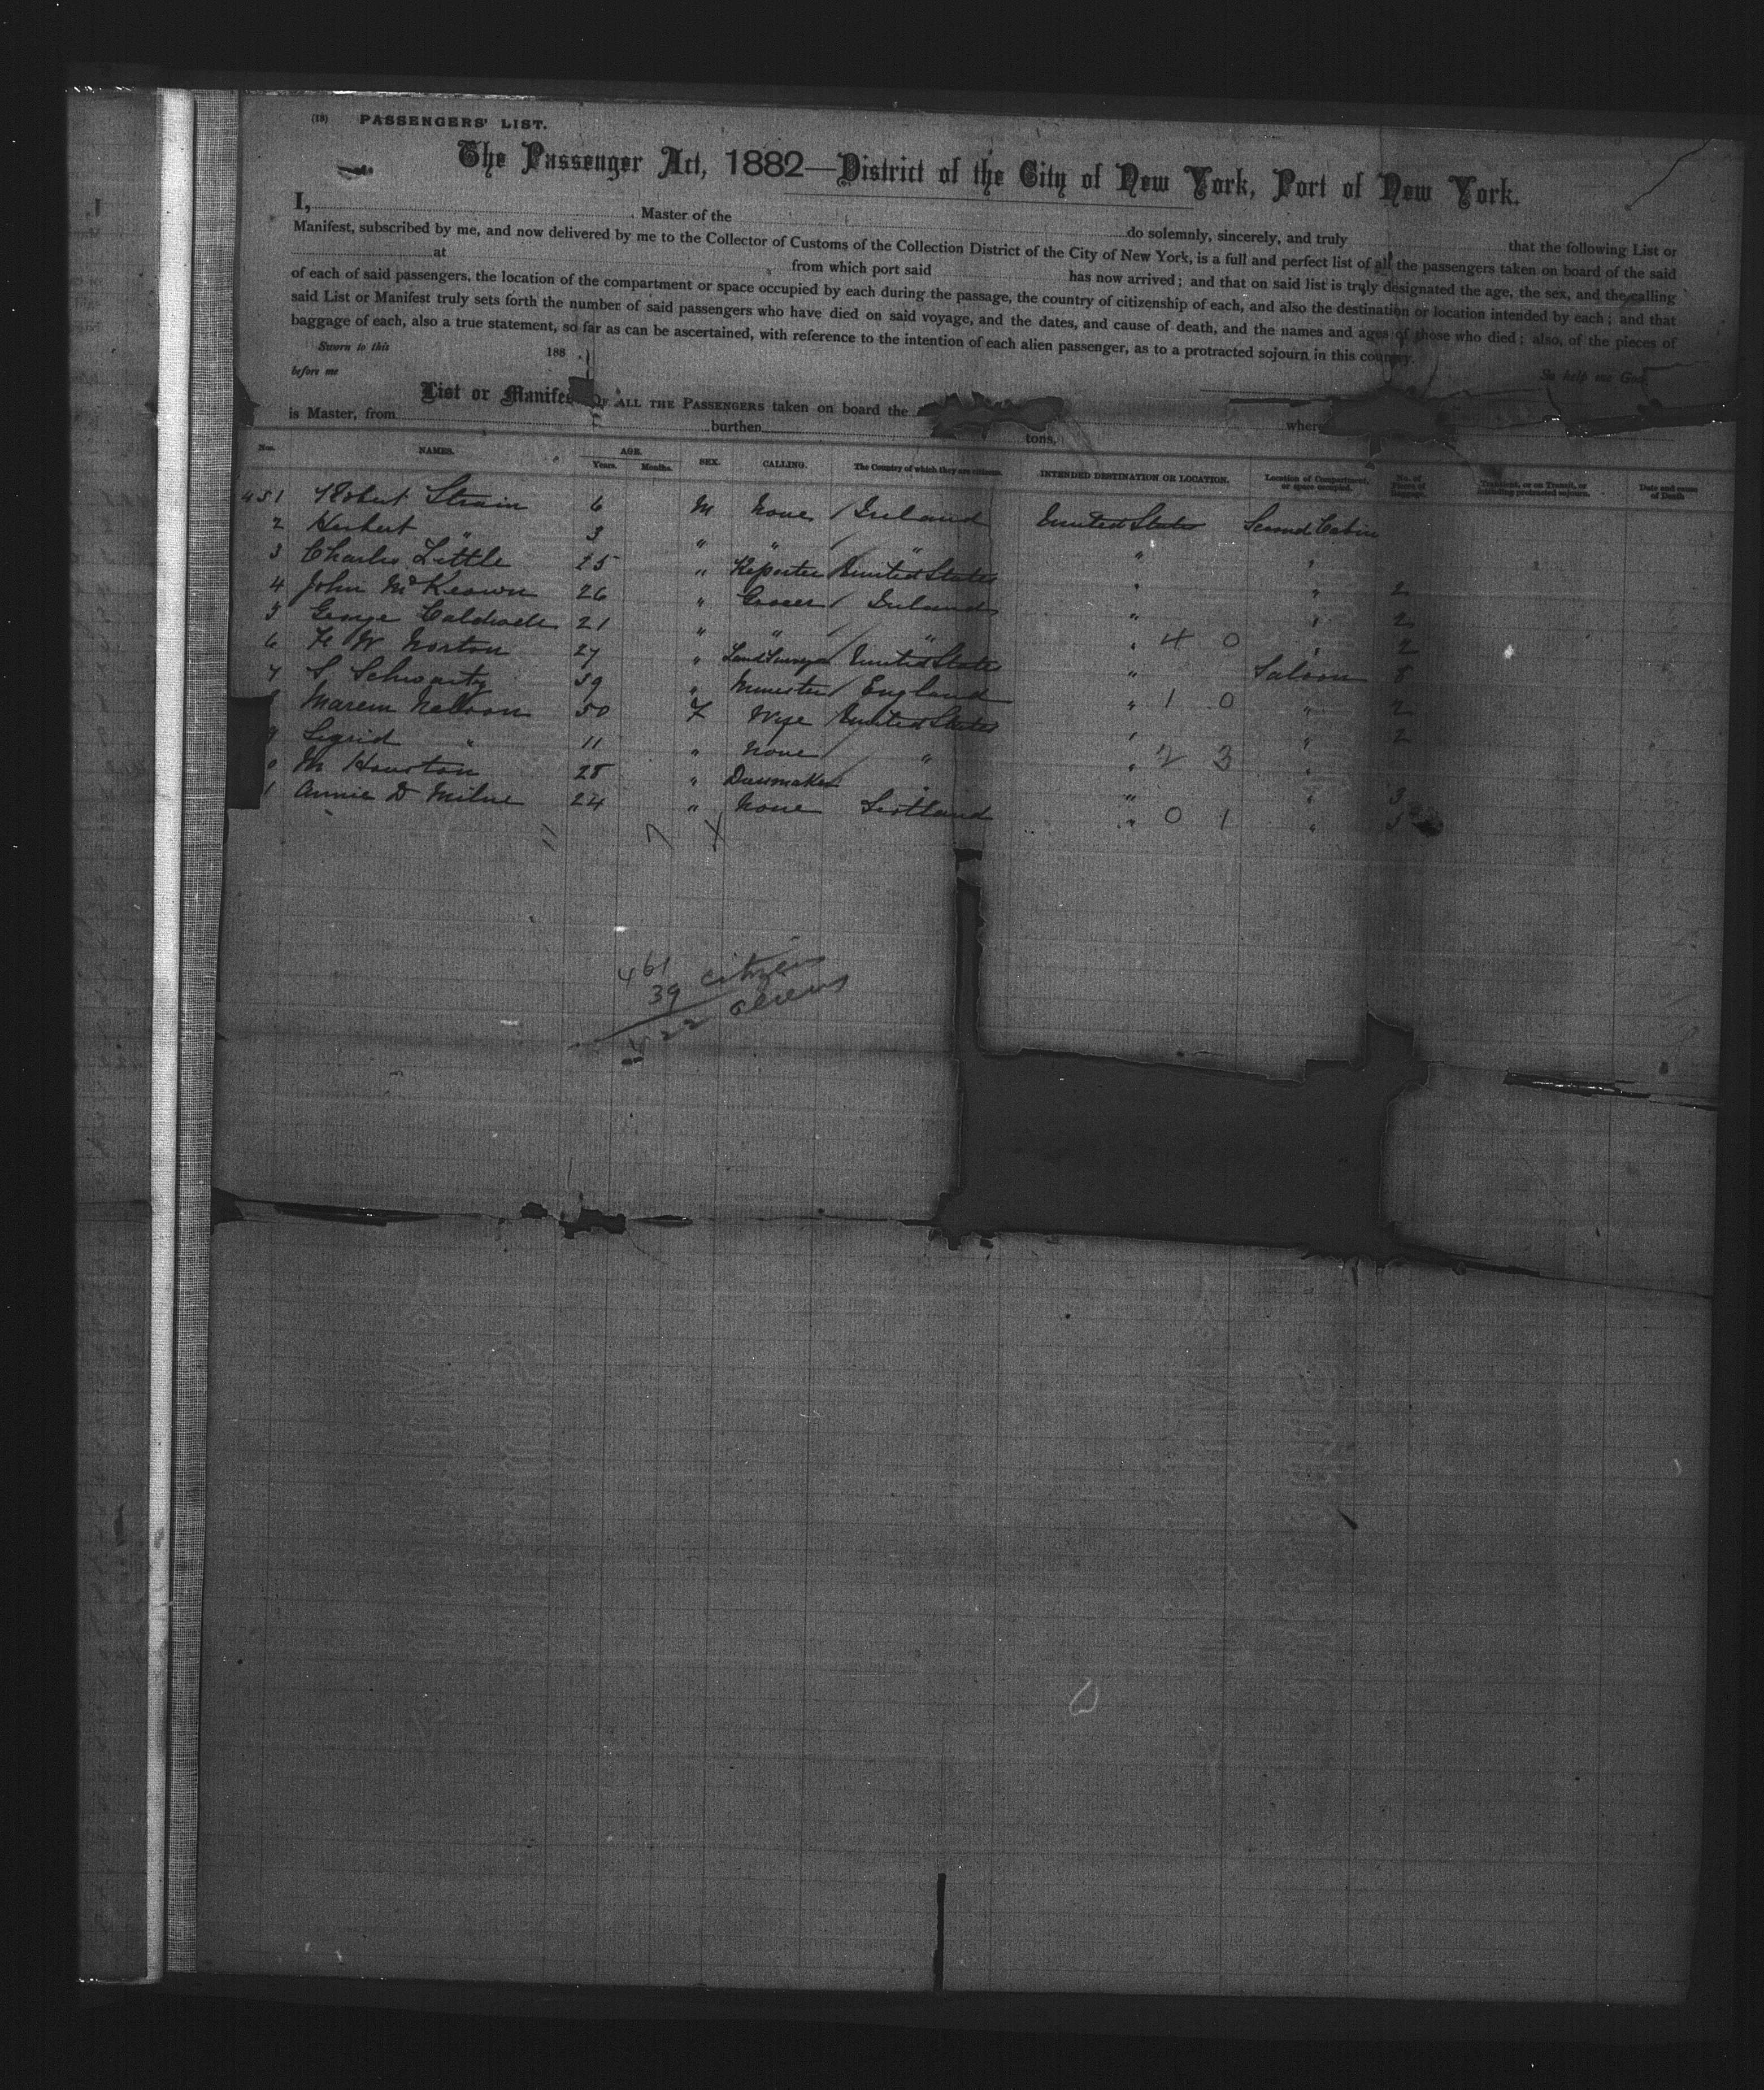 (18) PASSENGERS' LIST.
The Passenger Act, 1882—District of the City of New York, Port of New York.
I, Master of the do solemnly, sincerely, and truly that the following List or
Manifest, subscribed by me, and now delivered by me to the Collector of Customs of the Collection District of the City of New York, is a full and perfect list of all the passengers taken on board of the said
at from which port said has now arrived; and that on said list is truly designated the age, the sex, and the calling
of each of said passengers, the location of the compartment or space occupied by each during the passage, the country of citizenship of each, and also the destination or location intended by each; and that
said List or Manifest truly sets forth the number of said passengers who have died on said voyage, and the dates, and cause of death, and the names and ages of those who died; also, of the pieces of
baggage of each, also a true statement, so far as can be ascertained, with reference to the intention of each alien passenger, as to a protracted sojourn in this country.
Sworn to this 188 So help me God
before me
List or Manifes OF ALL THE PASSENGERS taken on board the wher
is Master, from burthen tons,
Nos. NAMES. AGE. Years. Months. SEX. CALLING. The Country of which they are citizens. INTENDED DESTINATION OR LOCATION. Location of Compartment, or space occupied. No. of Pieces of Baggage. Transient, or on Transit, or intending protracted sojourn. Date and cause of Death
451 Robert Strain 6 M None / Ireland United States Second Cabin
2 Herbert " 3 " " / " " "
3 Charles Little 25 " Reporter / United States " " 2
4 John McKeown 26 " Grocer / Ireland " " 2
5 George Caldwell 21 " " / " " 4 0 " 2
6 H W Norton 27 " Land Surveyor / United States " Saloon 8
7 S Schwartz 59 " Minister / England " 1 0 " 2
Marem Nelson 50 F Wife / United States " " 2
9 Sigrid " 11 " None / " " 2 3 "
0 M Houston 28 " Dressmaker / " " " 3
1 Annie D Milne 24 " None Scotland " 0 1 "
461
39 citizens
422 aliens